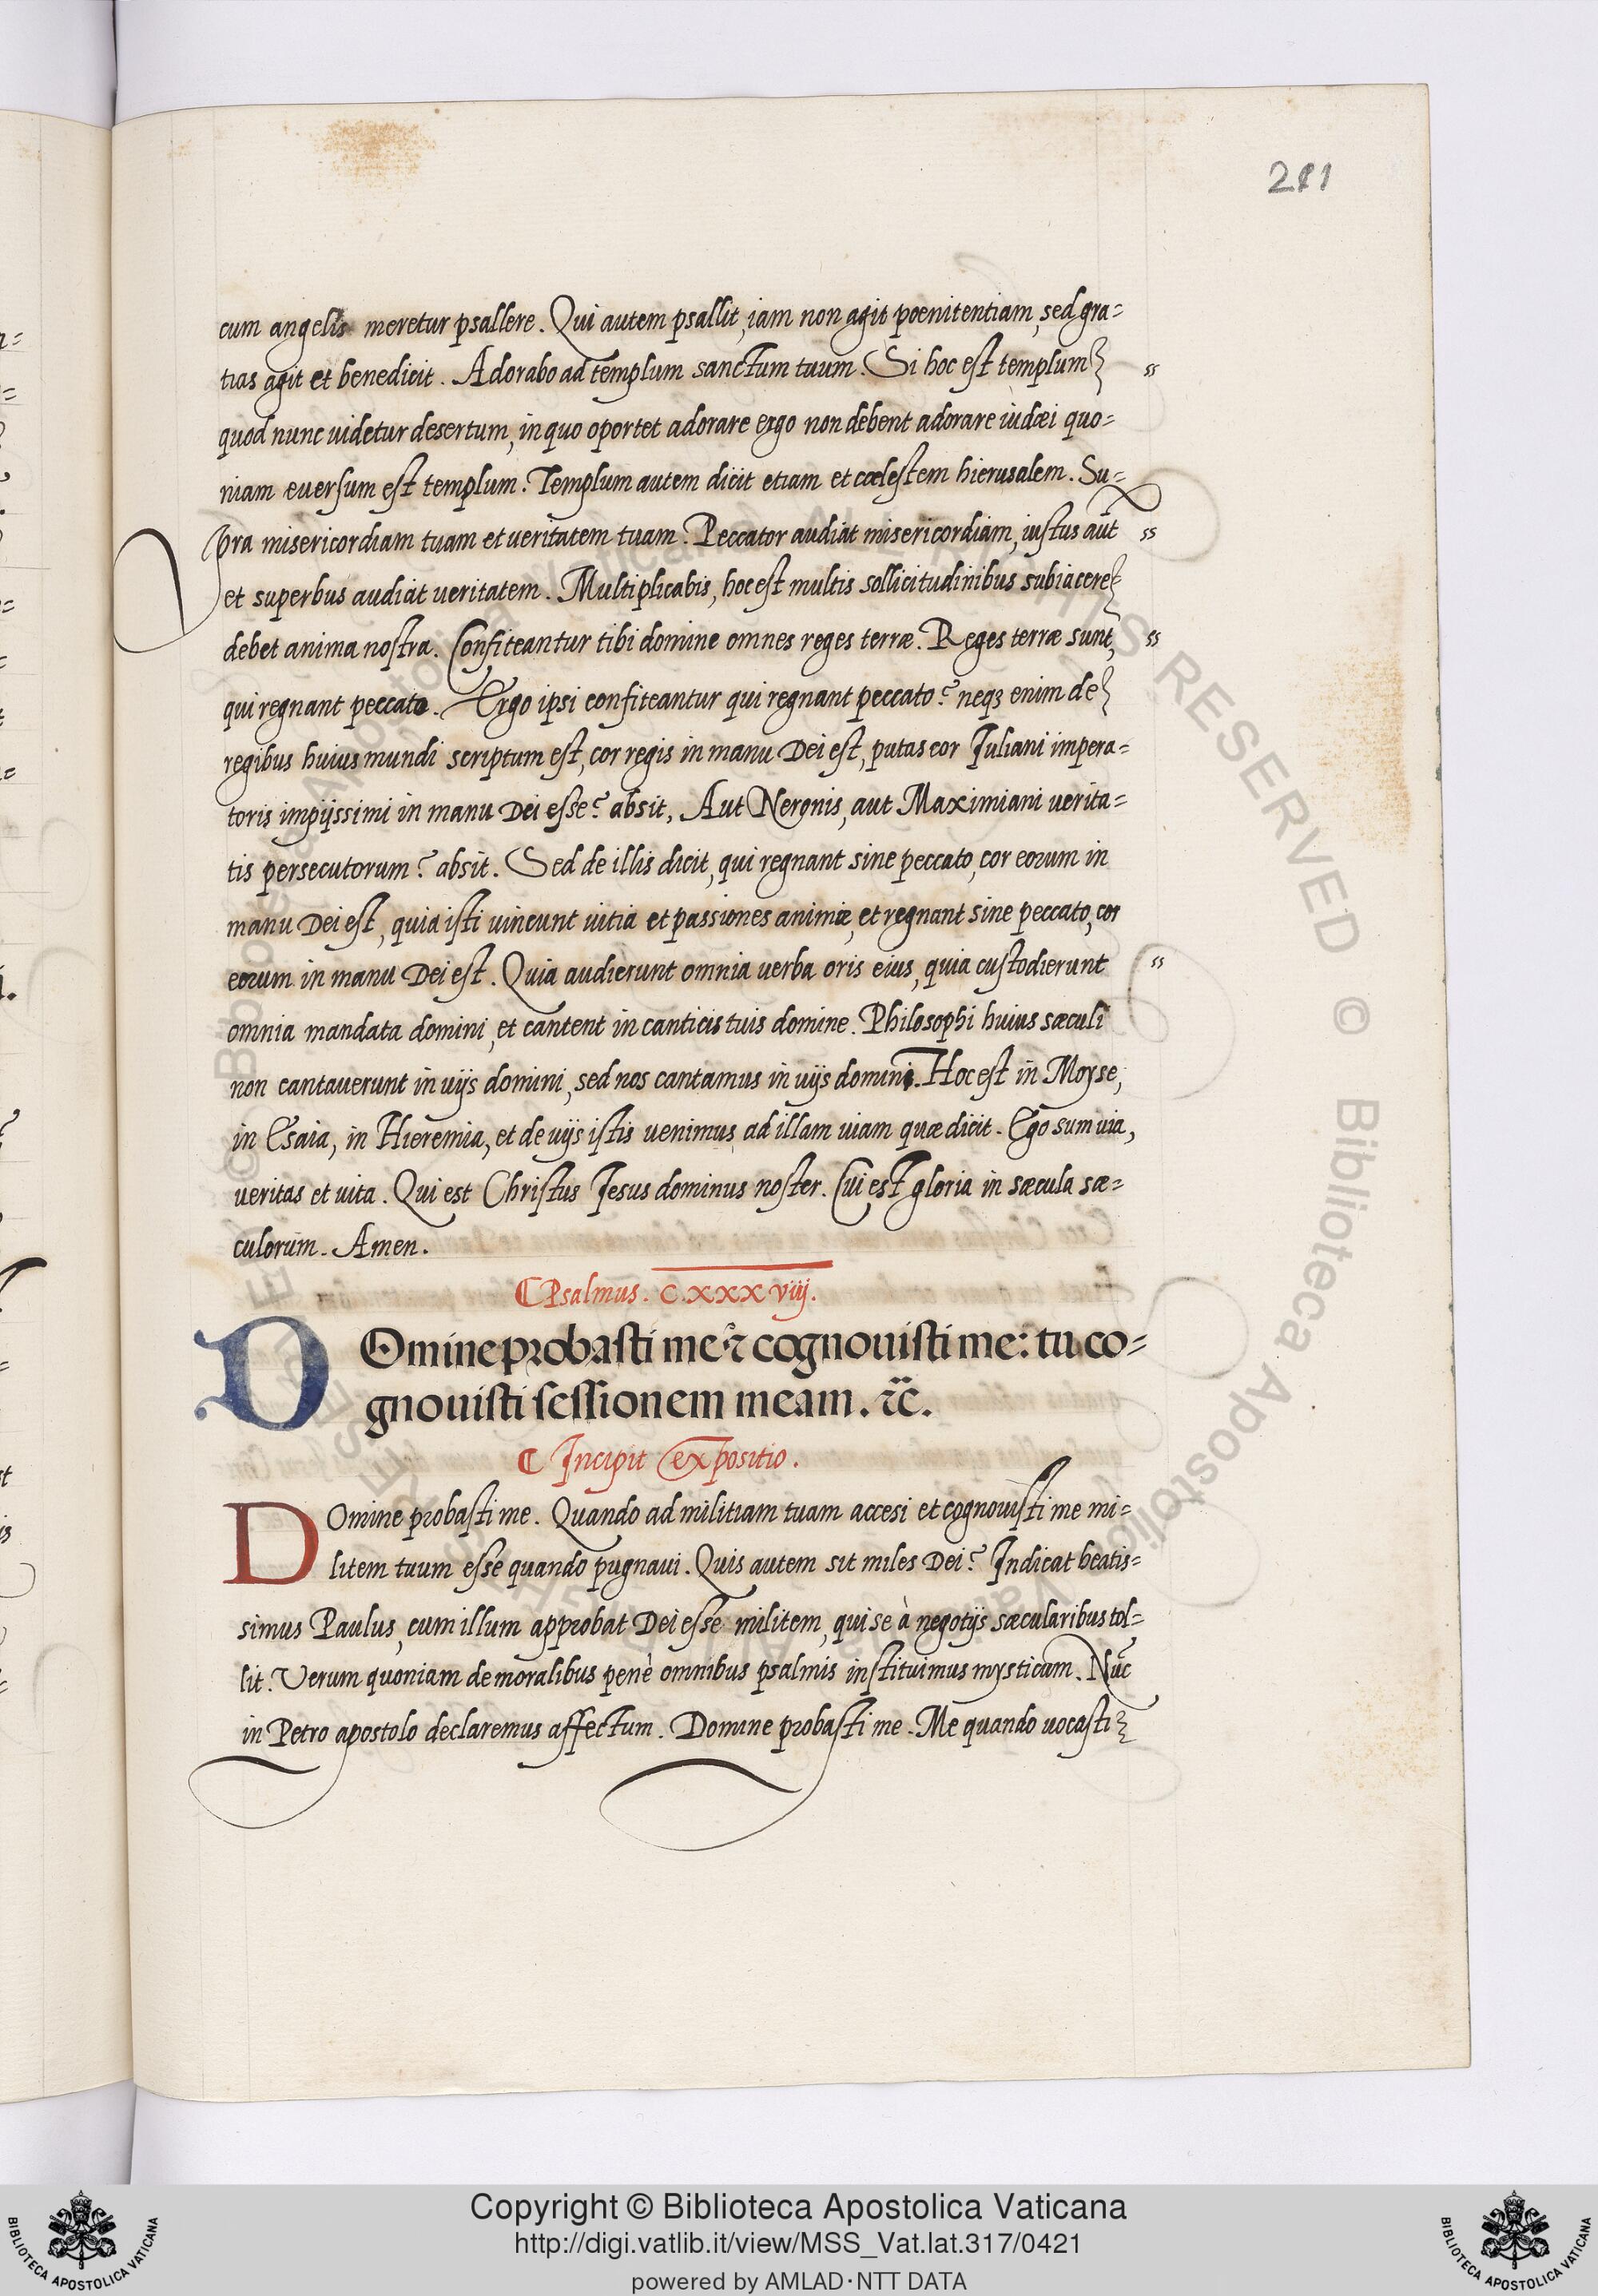 211
cum angelis meretur psallere. Qui autem psallit, iam non agit poenitentiam, sed gra=
tias agit et benedicit. Adorabo ad templum sanctum tuum. Si hoc est templum
quod nunc uidetur desertum, in quo oportet adorare ergo non debent adorare iudæi quo=
niam euersum est templum. Templum autem dicit etiam et cœlestem hierusalem. Su=
pra misericordiam tuam et ueritatem tuam. Peccator audiat misericordiam, iustus aūt
et superbus audiat ueritatem. Multiplicabis, hoc est multis sollicitudinibus subiacere
debet anima nostra. Confiteantur tibi domine omnes reges terræ. Reges terræ sunt,
qui regnant peccato. Ergo ipsi confiteantur qui regnant peccato? neqꝫ enim de
regibus huius mundi scriptum est, cor regis in manu Dei est, putas cor Iuliani impera=
toris impijssimi in manu Dei esse? absit, Aut Neronis, aut Maximiani uerita=
tis persecutorum? absit. Sed de illis dicit, qui regnant sine peccato, cor eorum in
manu Dei est, quia isti uincunt uitia et passiones animæ, et regnant sine peccato, cor
eorum in manu Dei est. Quia audierunt omnia uerba oris eius, quia custodierunt
omnia mandata domini, et cantent in canticis tuis domine. Philosophi huius sæculi
non cantauerunt in uijs domini, sed nos cantamus in uijs domini. Hoc est in Moyse,
in Esaia, in Hieremia, et de uijs istis uenimus ad illam uiam quæ dicit. Ego sum uia,
ueritas et uita. Qui est Christus Iesus dominus noster. Cui est gloria in sæcula sæ=
culorum. Amen.
¶ Psalmus. C.XXXVIIJ.
DOmine probasti me ⁊ cognouisti me: tu co=
gnouisti sessionem meam. ⁊c̄.
¶ Incipit expositio.
DOmine probasti me. Quando ad militiam tuam accesi et cognouisti me mi=
litem tuum esse quando pugnaui. Quis autem sit miles Dei? Indicat beatis=
simus Paulus, cum illum approbat Dei esse militem, qui se à negotijs sæcularibus tol=
lit. Verum quoniam de moralibus penè omnibus psalmis instituimus mysticam. Nūc
in Petro apostolo declaremus affectum. Domine probasti me. Me quando uocasti
Copyright © Biblioteca Apostolica Vaticana
http://digi.vatlib.it/view/MSS_Vat.lat.317/0421
powered by AMLAD·NTT DATA
BIBLIOTECA APOSTOLICA VATICANA
BIBLIOTECA APOSTOLICA VATICANA